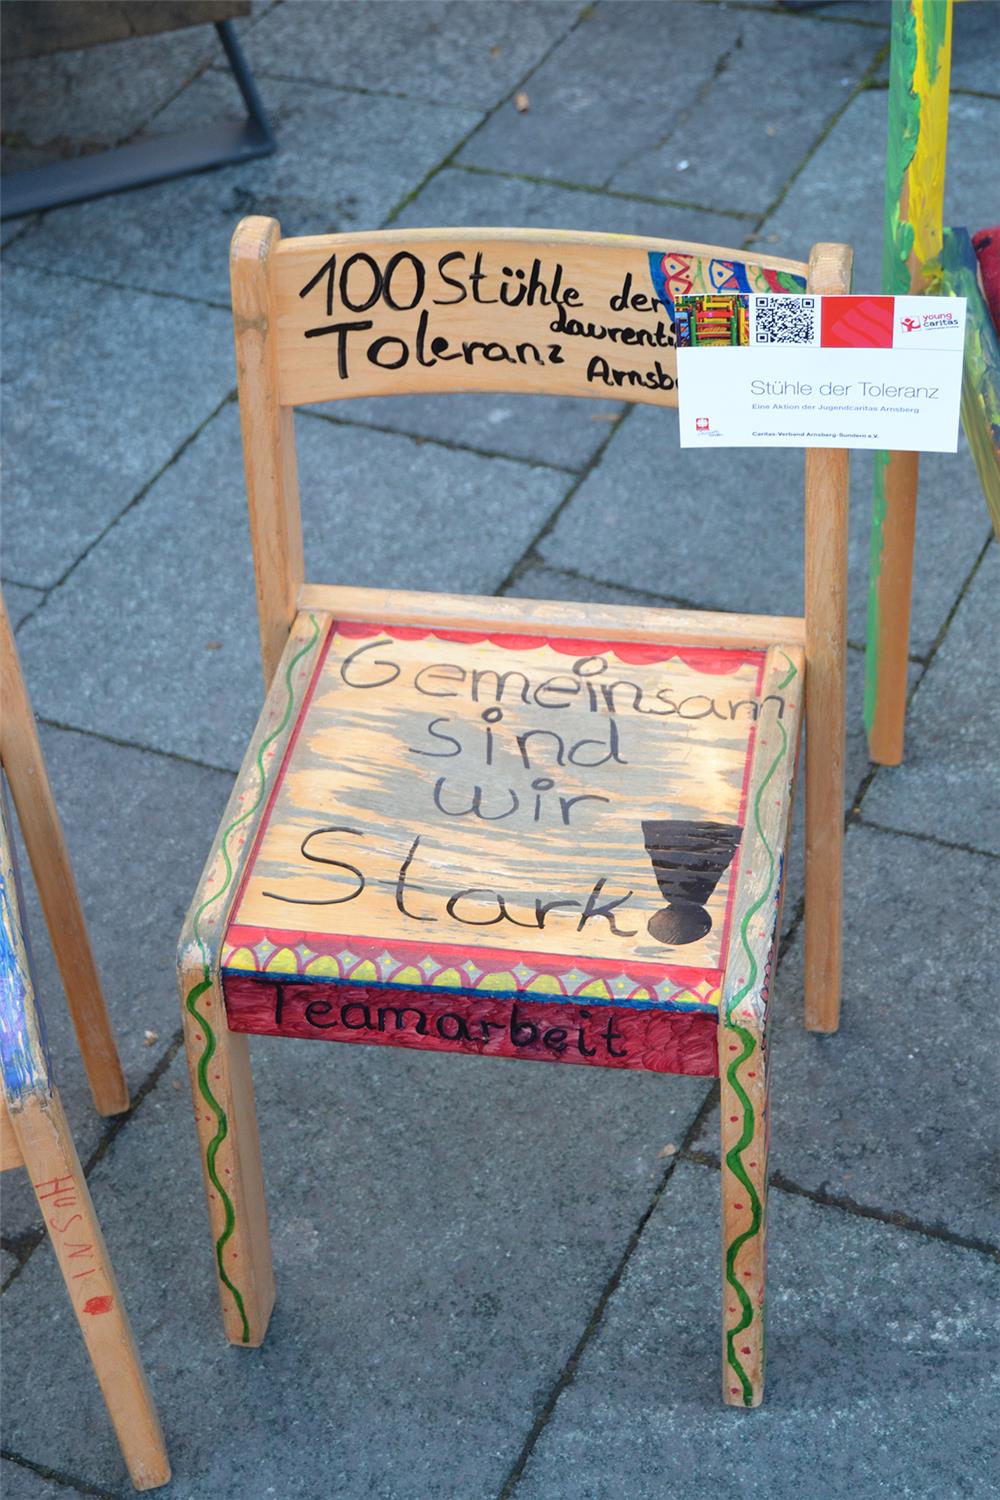 100 Stühle der
Toleranz
Arnsb
young
caritas
Stühle der Toleranz
Eine Aktion der Jugendcaritas Arnsberg
Caritas-Verband Arnsberg-Sundern e.V.
Gemeinsam
sind
wir
Stark!
Teamarbeit
HÜSNI